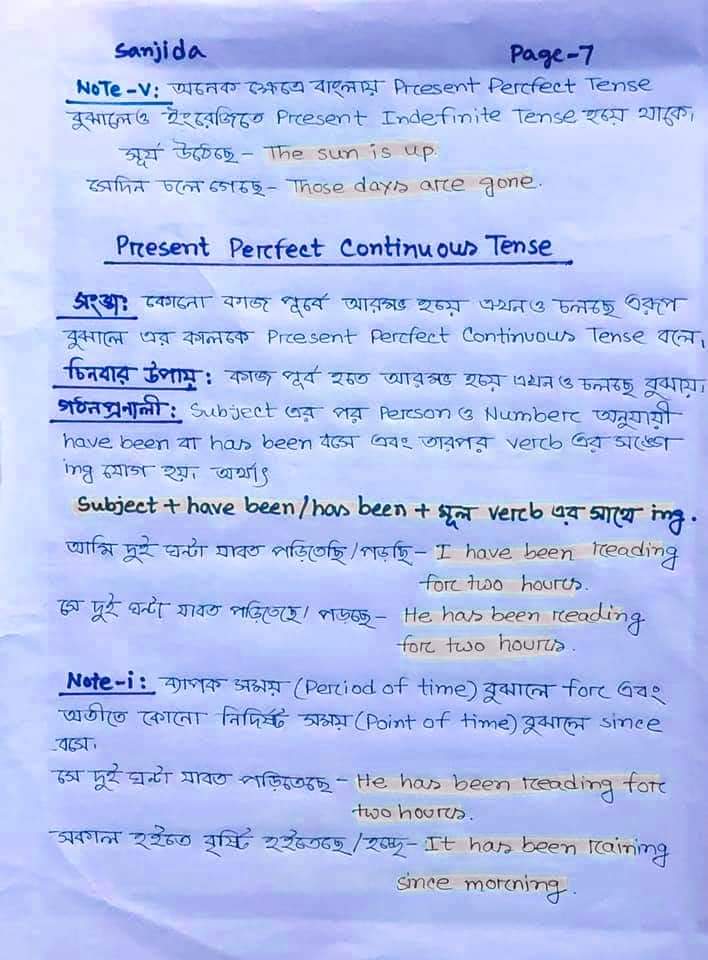 Sanjida Page-7
NoTe-V: অনেক ক্ষেত্রে বাংলায় Present Perfect Tense
বুঝালেও ইংরেজিতে Present Indefinite Tense হয়ে থাকে।
সূর্য উঠেছে - The sun is up.
সেদিন চলে গেছে - Those days are gone.
Present Perfect Continuous Tense
সংজ্ঞা: কোনো কাজ পূর্বে আরম্ভ হয়ে এখনও চলছে এরূপ
বুঝালে এর কালকে Present Perfect Continuous Tense বলে।
চিনবার উপায়: কাজ পূর্ব হতে আরম্ভ হয়ে এখনও চলছে বুঝায়।
গঠনপ্রনালী: Subject এর পর Person ও Number অনুযায়ী
have been বা has been বসে এবং তারপর verb এর সঙ্গে
ing যোগ হয়। অর্থাৎ
Subject + have been/has been + মূল verb এর সাথে ing.
আমি দুই ঘন্টা যাবত পড়িতেছি/পড়ছি - I have been reading
for two hours.
সে দুই ঘন্টা যাবত পড়িতেছে/পড়ছে - He has been reading
for two hours.
Note-i: ব্যাপক সময় (Period of time) বুঝালে for এবং
অতীতে কোনো নির্দিষ্ট সময় (Point of time) বুঝালে since
বসে।
সে দুই ঘন্টা যাবত পড়িতেছে - He has been reading for
two hours.
সকাল হইতে বৃষ্টি হইতেছে/হচ্ছে - It has been raining
since morning.